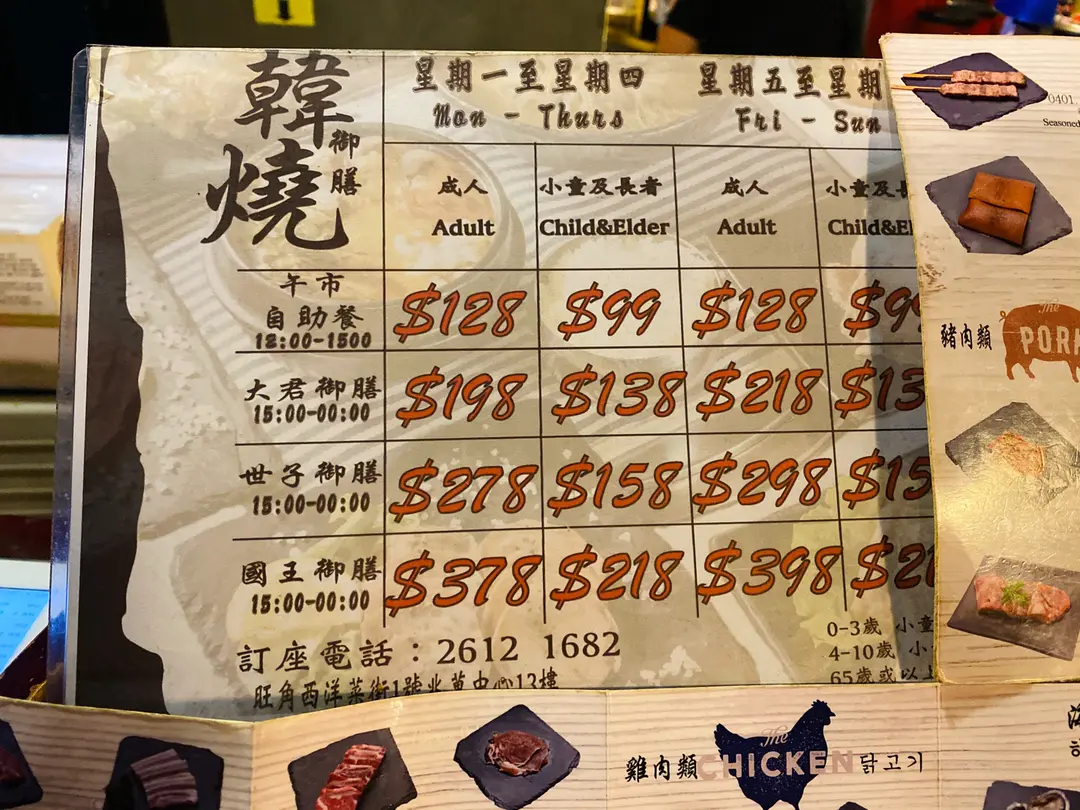 韓燒
御膳
星期一至星期四
Mon - Thurs
星期五至星期
Fri - Sun
成人
Adult
小童及長者
Child&Elder
成人
Adult
小童及長
Child&El
午市
自助餐
12:00-1500
$128
$99
$128
$9
大君御膳
15:00-00:00
$198
$138
$218
$13
世子御膳
15:00-00:00
$278
$158
$298
$15
國王御膳
15:00-00:00
$378
$218
$398
$21
訂座電話：2612 1682
旺角西洋菜街1號兆萬中心13樓
0-3歲 小童
4-10歲 小
65歲或以上
0401
Seasoned
豬肉類
The
PORK
雞肉類
The
CHICKEN
닭고기